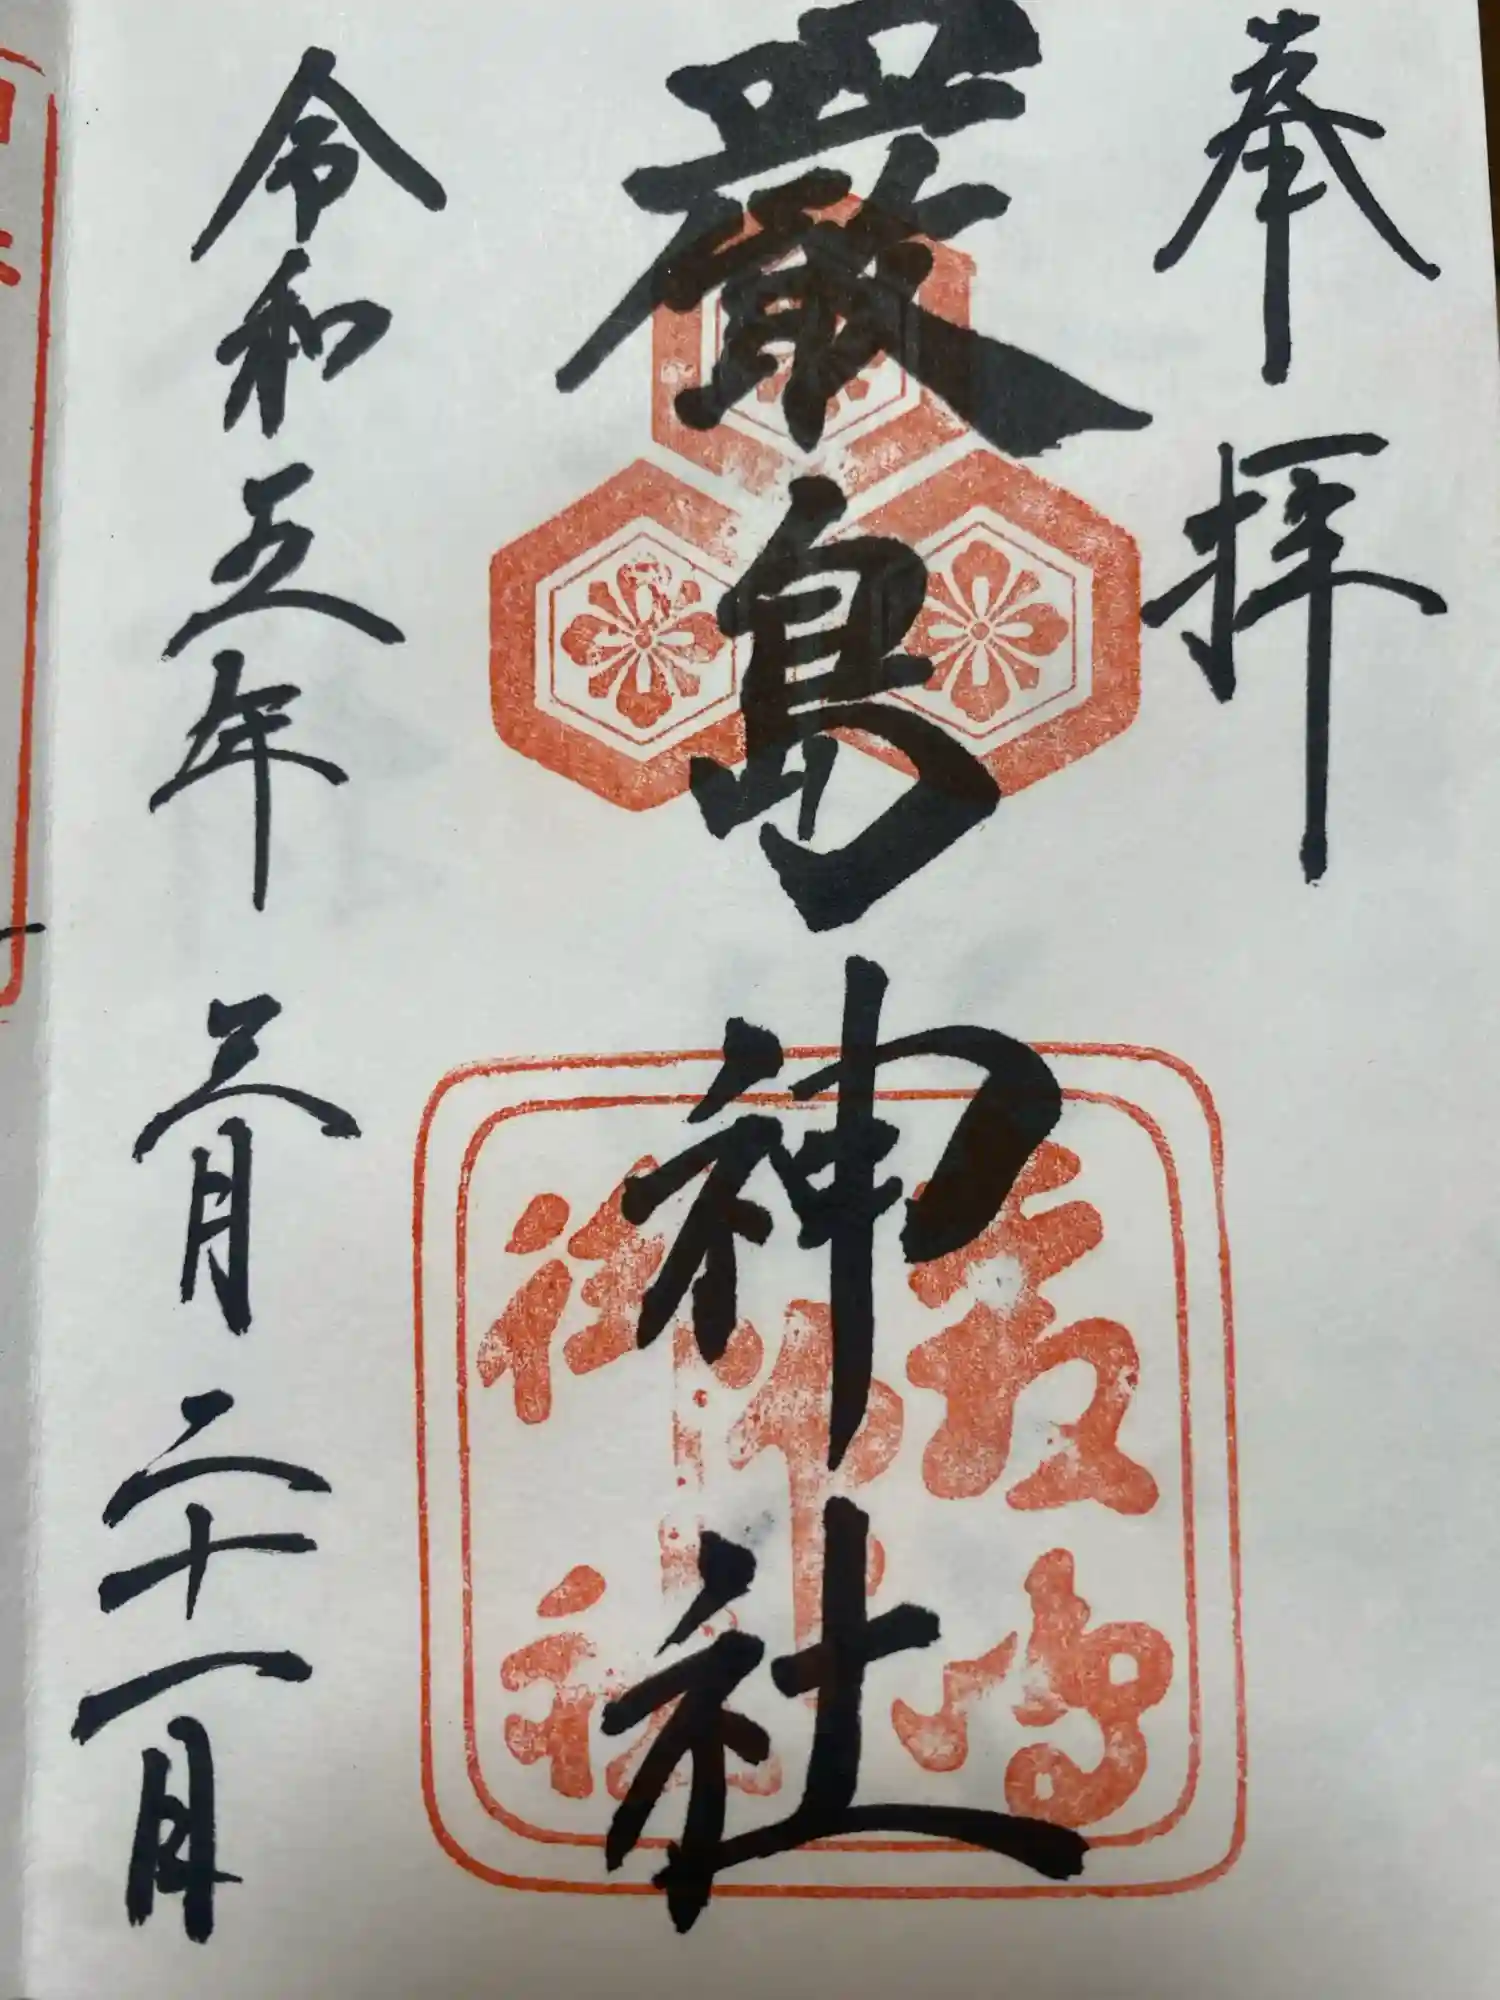 奉拝
厳島神社
令和五年 三月二十一日
厳島神社